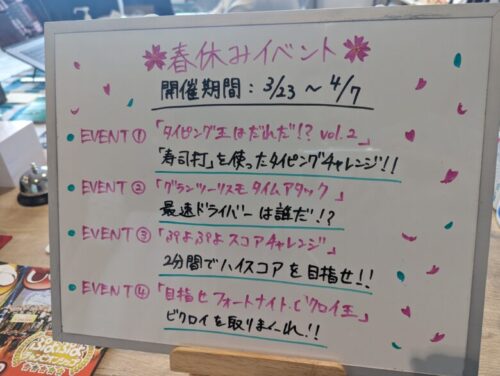 春休みイベント
開催期間：3/23～4/7
EVENT① 「タイピング王はだれだ!? vol.2」
「寿司打」を使ったタイピングチャレンジ!!
EVENT② 「グランツーリスモ タイムアタック」
最速ドライバーは誰だ!?
EVENT③ 「ぷよぷよ スコアチャレンジ」
2分間でハイスコアを目指せ!!
EVENT④ 「目指せフォートナイト.ビクロイ王」
ビクロイを取りまくれ!!
ぷよぷよ